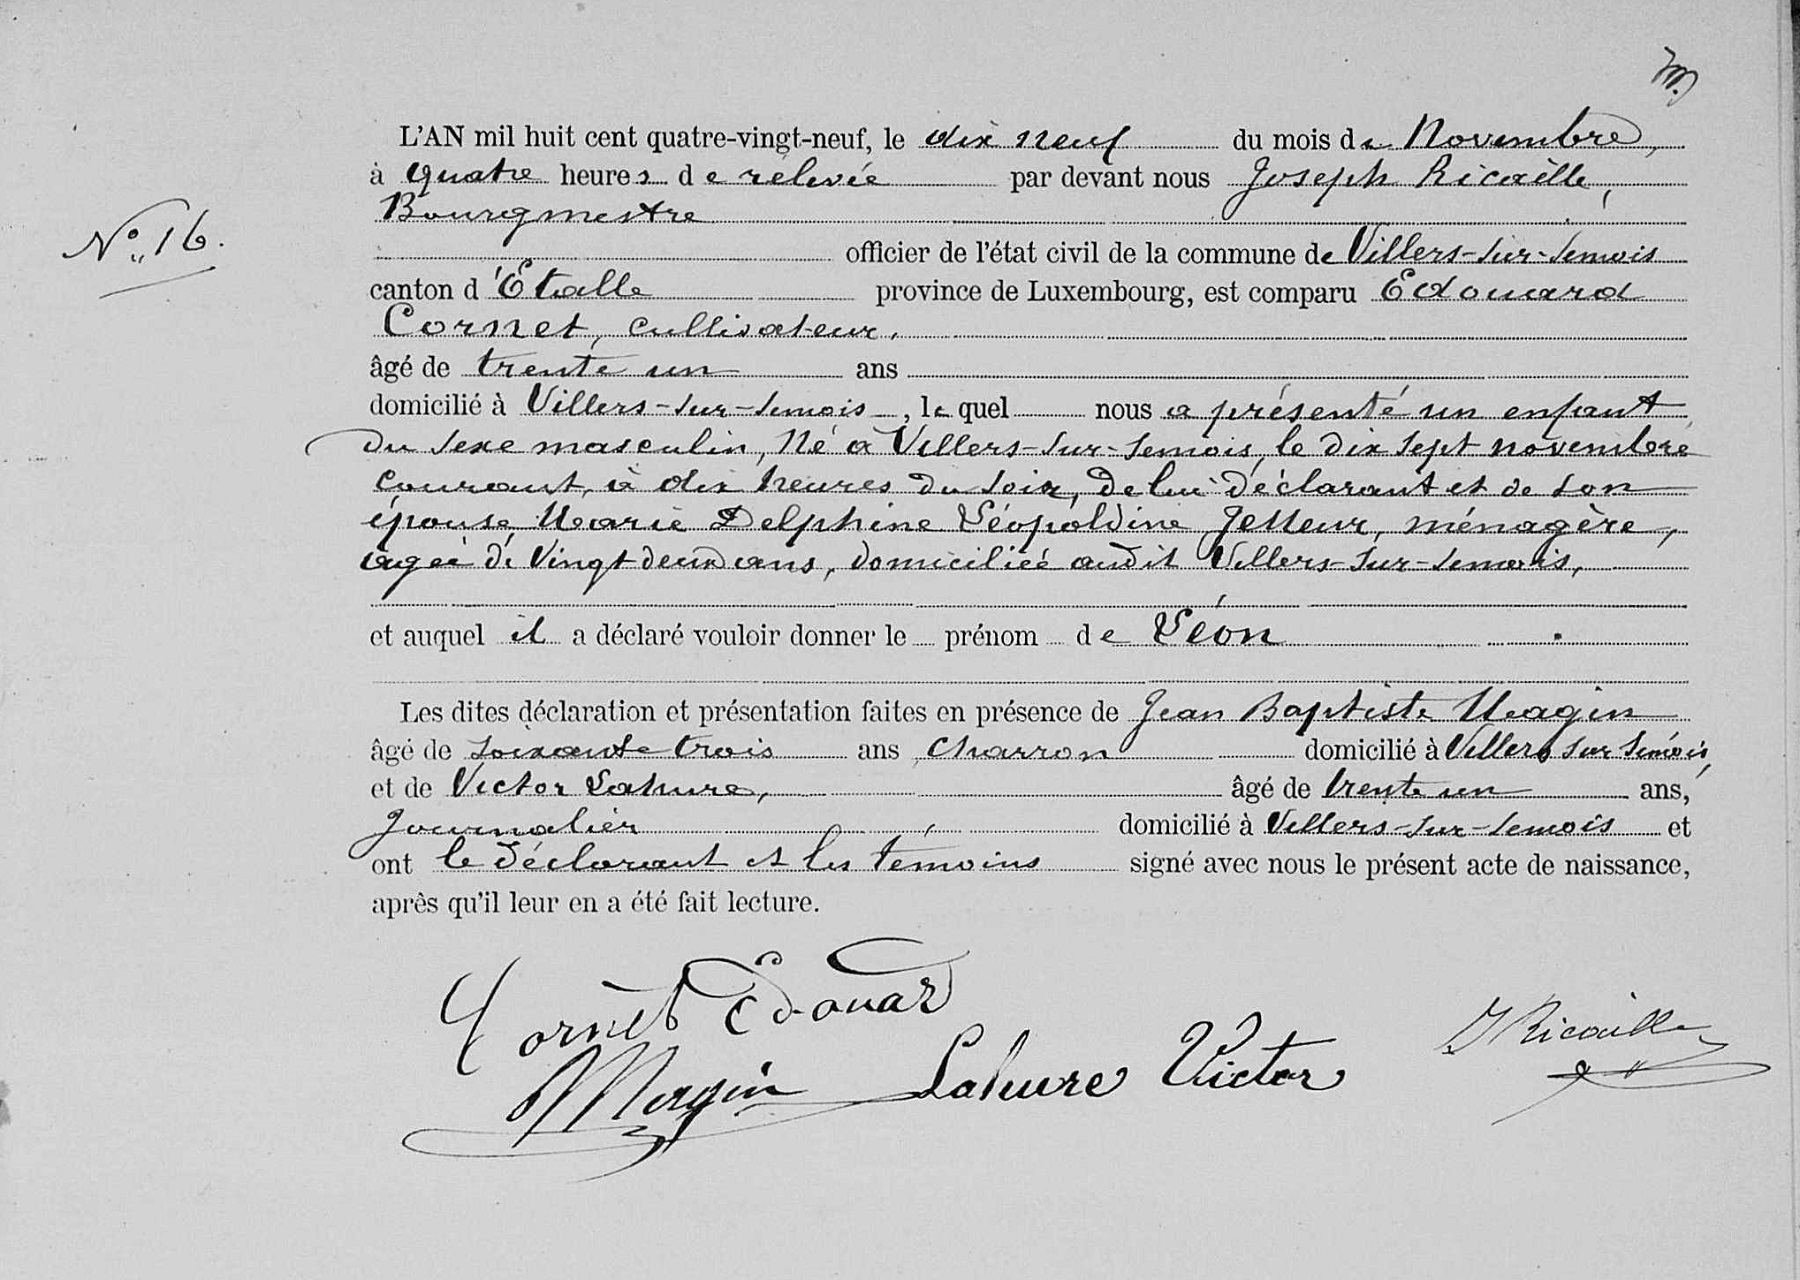 L'AN mil huit cent quatre-vingt-neuf, le dix neuf du mois de Novembre,
à quatre heures de relevée par devant nous Joseph Ricaille,
Bourgmestre
N° 16.
officier de l'état civil de la commune de Villers-sur-Semois
canton d'Etalle province de Luxembourg, est comparu Edouard
Cornet, cultivateur,
âgé de trente un ans
domicilié à Villers-sur-Semois, lequel nous a présenté un enfant
du sexe masculin, né à Villers-sur-Semois, le dix sept novembre
courant, à dix heures du soir, de lui déclarant et de son
épouse Marie Delphine Léopoldine Jetteur, ménagère,
agée de vingt deux ans, domiciliée audit Villers-sur-Semois,
et auquel il a déclaré vouloir donner le prénom de Léon
Les dites déclaration et présentation faites en présence de Jean Baptiste Magin
âgé de soixante trois ans charron domicilié à Villers sur Semois,
et de Victor Lahure, âgé de trente un ans,
journalier domicilié à Villers-sur-Semois et
ont le déclarant et les témoins signé avec nous le présent acte de naissance,
après qu'il leur en a été fait lecture.
Cornet Edouard
J Ricaille
Magin Lahure Victor